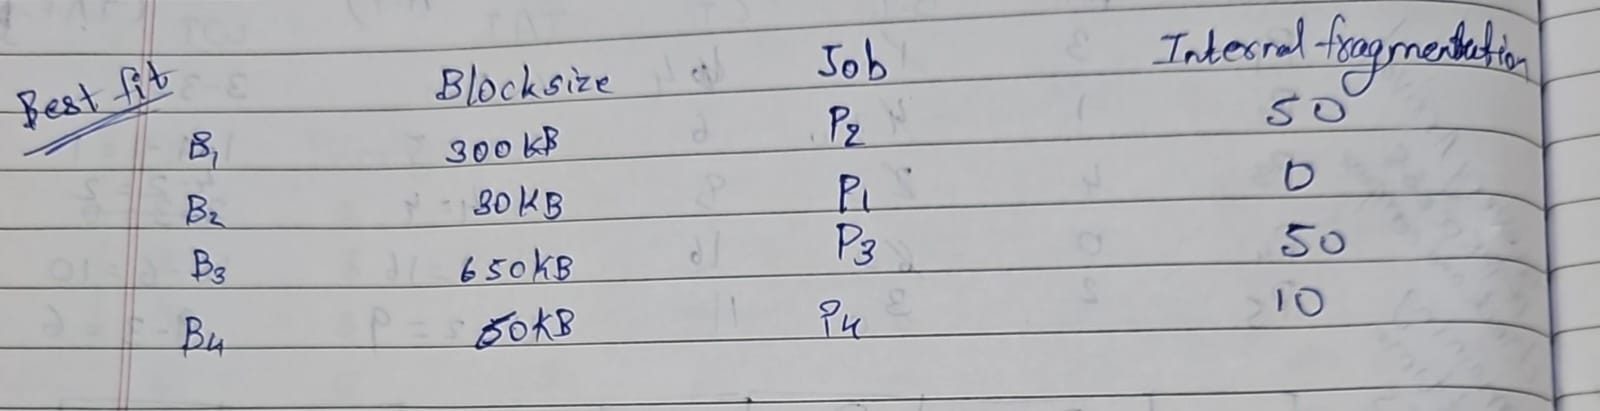 Best fit Blocksize Job Internal fragmentation
B1 300KB P2 50
B2 30KB P1 0
B3 650KB P3 50
B4 50KB P4 10